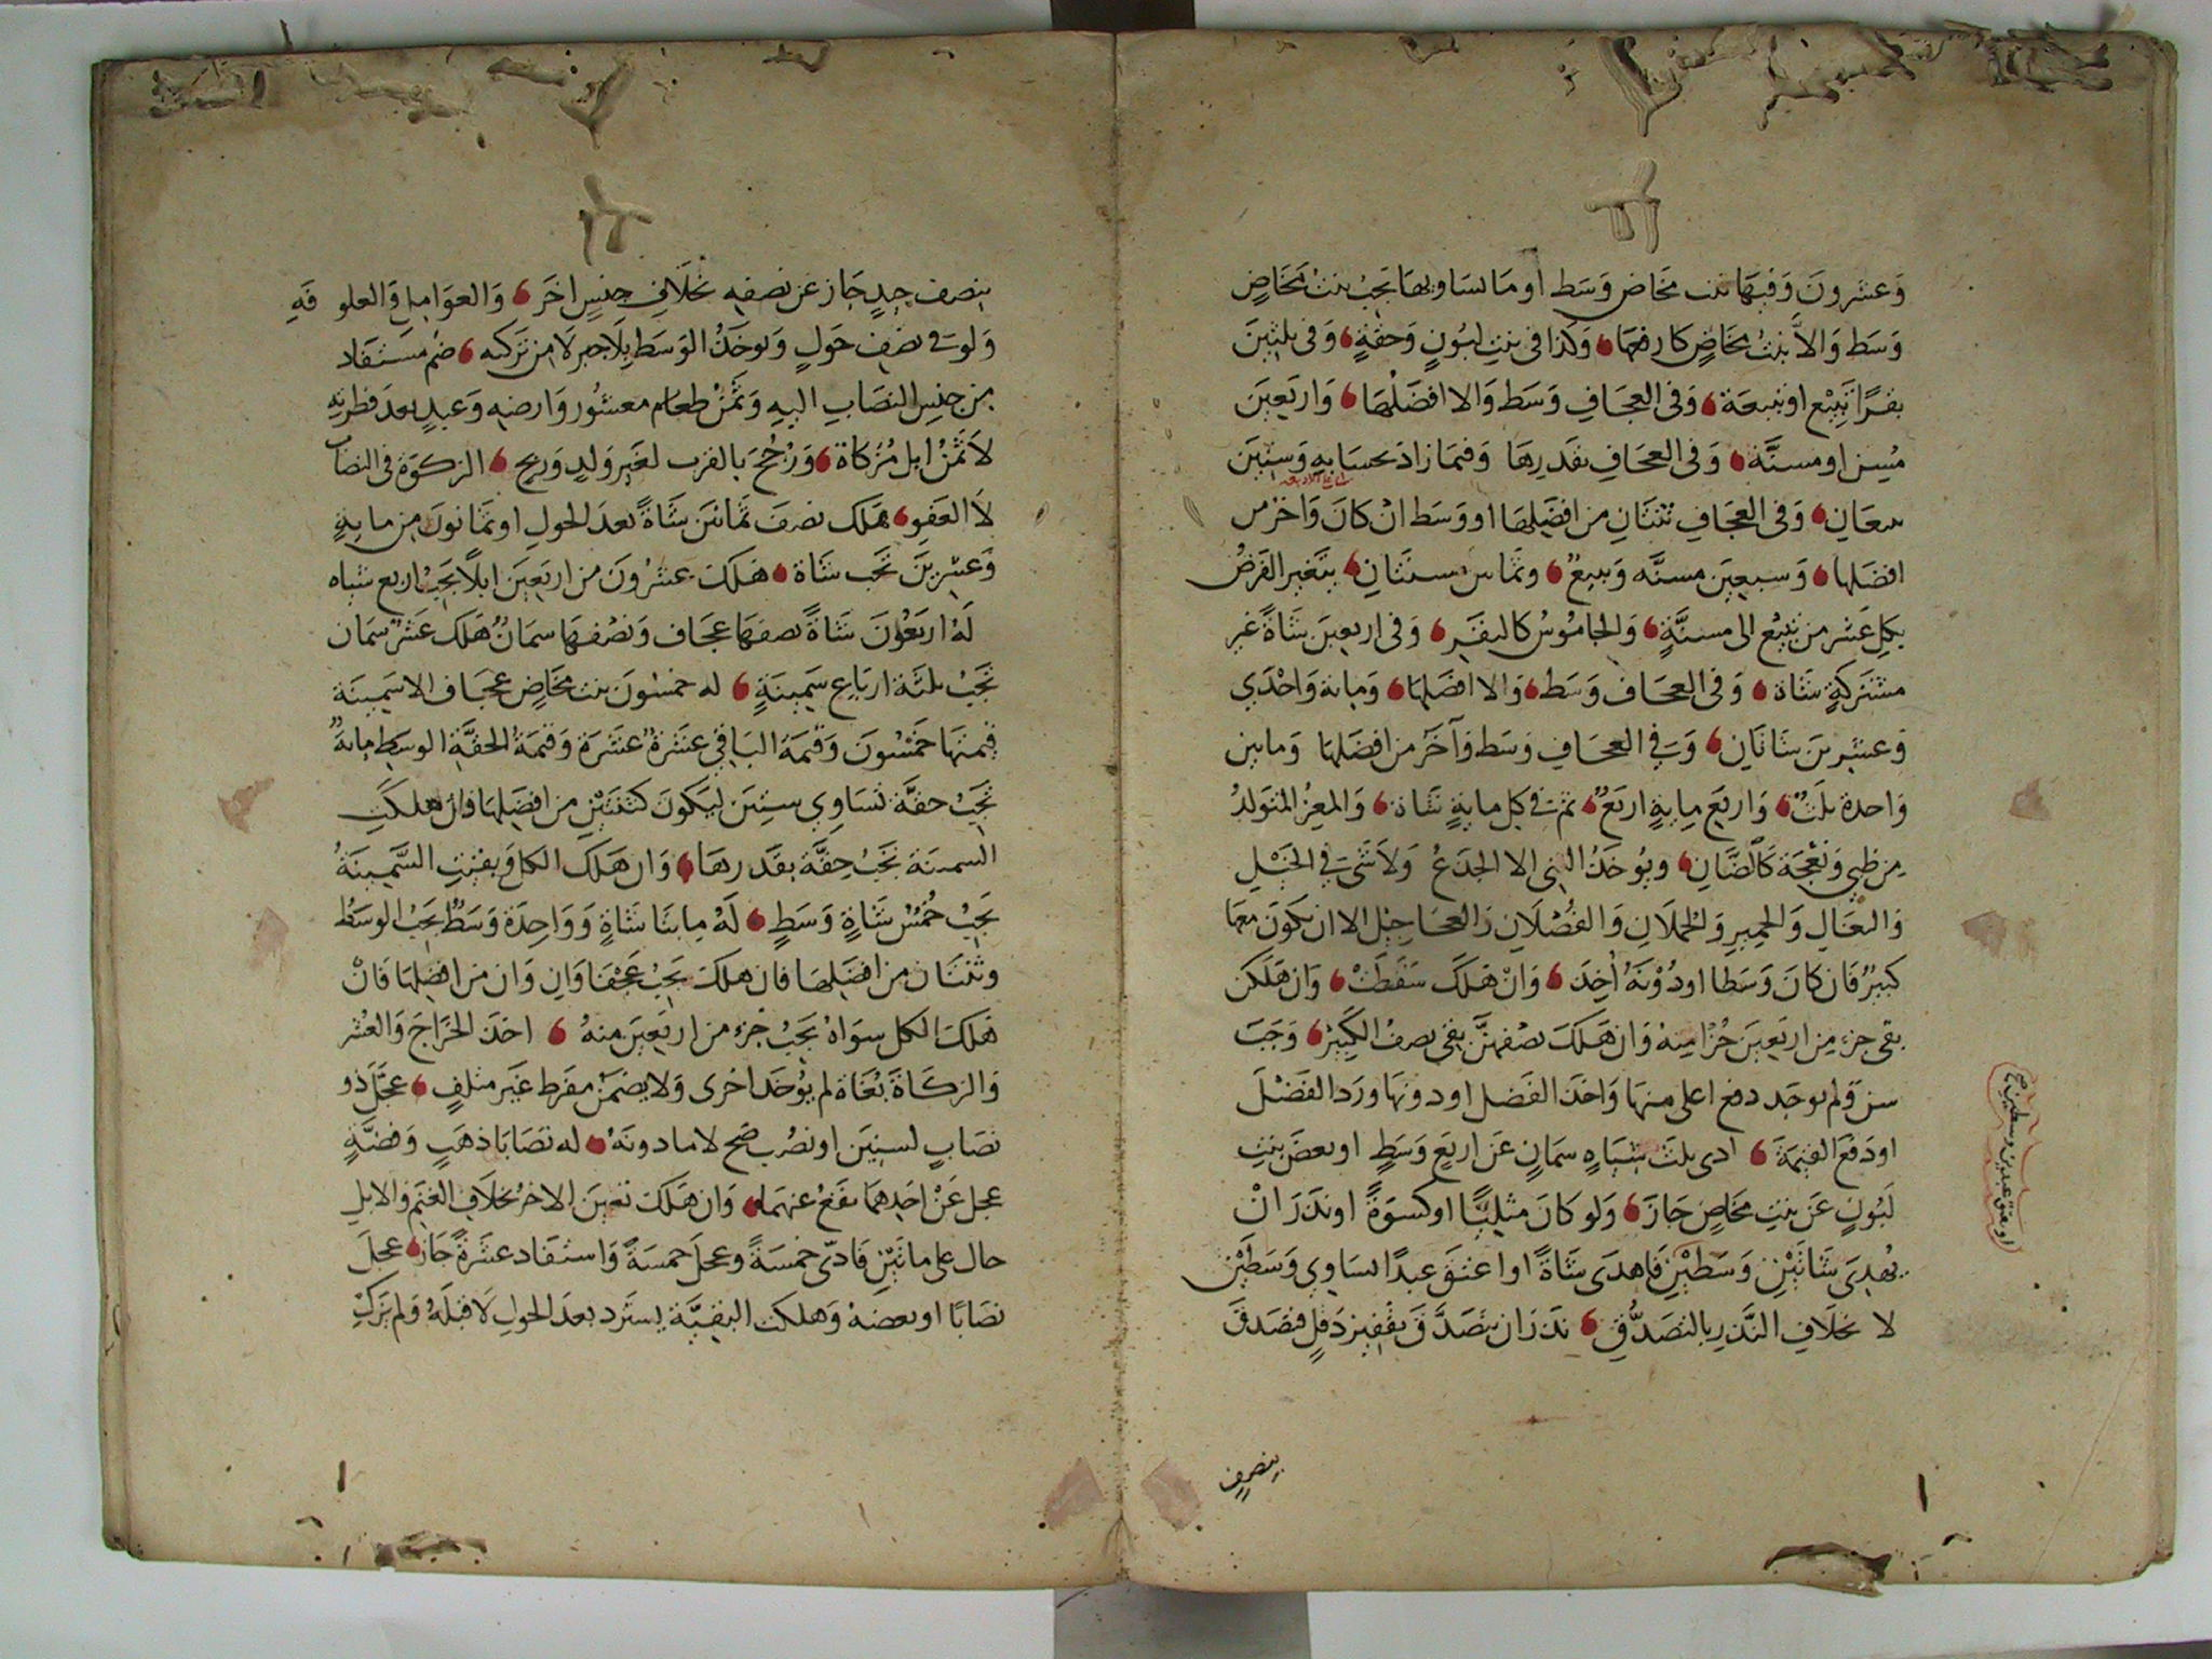 وَعشرونَ وَفيهَا بنت مخَاض وَسَط او مَا يسَاويهَا يَجِبُ بنتُ مَخَاضٍ
وَسَط وَالاَّ بنتُ مخَاضٍ كارفعهَا وَكذا فى بنتِ لبُونٍ وَحقةٍ وَفى ثلثينَ
بقرًا تَبِيْع او تبيعَة وَفى العجَافِ وَسَط وَالا افضَلُهَا وَاربَعينَ
مُسِن او مسنَّة وَفى العجَافِ بقَدرِهَا وَفيمَا زادَ بحسَابهِ وَستينَ
تبيعَانِ وَفى العجَافِ ثنتَانِ من افضَلِهَا او وَسَط انْ كانَ وَاخرُ من
افضَلها وَسبعينَ مسنَّه وَتبيعٌ وثمَانين مسنتَانِ يتَغير الفَرضُ
بكلِ عَشر من تبِيْع الى مسنَّةٍ وَالجامُوسُ كالبقَرِ وَفى اربعينَ شَاةً غير
مشتَركةٍ شَاة وَفى العجَاف وَسَط وَالا افضَلهَا وَمايةٍ وَاحْدَى
وَعشرينَ شَاتَانِ وَفى العجَافِ وَسَط وَآخَرُ من افضَلهَا وَمايتين
وَاحدة ثلَثٌ وَاربَع مِايةٍ اربَعٌ ثم فى كل مايةٍ شَاة وَالمعِزُ المتَولدُ
مِن ظبيٍ وَنعْجَة كَالضَّانِ ويُؤخَذُ الثنى الا الجذعُ وَلاَ شئَ فِي الخَيْلِ
وَالبغَالِ وَالحَميرِ وَالحُملاَنِ وَالفُصْلاَنِ وَالعجَاجيل الا ان يكونَ معهَا
كبيرٌ فَان كَانَ وَسَطا اودُوْنَهُ اُخِذَ وَانْ هَلَكَ سَقَطَتْ وَان هَلَكن
بقى جزء مِن اربَعينَ جُزْا مِنهُ وَان هَلَكَ نصْفهنَّ بقى نصفُ الكَبِيْر وَجَبَ
سن وَلم يوجَد دفع اعلى منهَا وَاخَذ الفَضل اودونهَا ورَد الفَضْلَ
اودَفعَ القيمَةَ ادى ثلثَ شيَاهٍ سمَانٍ عَن اربَعٍ وَسَطٍ او بعضَ بنتِ
لَبُونٍ عَن بنتِ مخَاضٍ جَازَ وَلو كَانَ مثليًّا اوكسوَةً او نَذرَ انْ
يُهدِىَ شَاتَيْنِ وَسَطَيْنِ فَاهدَى شَاةً او اعتَقَ عبدًا يسَاوِي وَسَطَيْنِ
لا بخلاَفِ النَّذرِ بالتصَدُّقِ نذرَ ان يتَصَدَّقَ بقَفِيز دَقلٍ فتصَدقَ
بنصفٍ
او يعتق عبدين وسطين صح
بنصف جيدٍ جَاز عن نصفِهِ بخلاَفِ جِنسٍ اخَرَ وَالعوَامل وَالعلوفَهِ
وَلو فى نصفِ حَولٍ وَيوخَذُ الوَسَط بلاَ جبرٍ لاَ من تَركته ضُم مستَفاد
من جنسِ النصَابِ اليهِ وَثَمنُ طعَام معشُور وَارضِهِ وَعبدٍ بعدَ فطرتِهِ
لاَ ثَمنُ ابل مُزكاة وَرُجّحَ بالقرب لغَيرِ وَلدٍ وَربحٍ الزكوة فى النصَاب
لاَ العَفوِ هَلكَ نصفَ ثمَانينَ شَاةً بعدَ الحولِ او ثمَانونَ من مايةٍ
وَعشرِينَ تَجبُ شَاة هَلكَ عشرُونَ من اربَعينَ ابلاً يَجبُ اربع شيَاه
لَهُ اربَعُوْنَ شَاةً نصفهَا عجَاف وَنصْفهَا سمَانٌ هَلك عَشرٌ سمَان
تَجبُ ثلثَة اربَاعِ سَمينَةٍ له خمسُونَ بنت مخَاضٍ عجَاف الا سَمينَة
قيمتهَا خَمسُونَ وَقيمَة البَاقي عشَرةٌ عشَرَة وَقيمَةُ الحقَّةِ الوسَطِ مايةٌ
تَجبُ حقَّة تسَاوِي ستينَ ليَكونَ كثنتَيْنِ من افضَلهَا وان هلكتِ
السمينَة تَجبُ حِقَّة بقَدرهَا وَان هَلكَ الكل وَبقيَتِ السَّمينَةُ
يَجبُ خُمُسُ شَاةٍ وَسَطٍ لَهُ مايتَا شَاةٍ وَوَاحِدَة وَسَطٌ يَجبُ الوسَطُ
وثنتَان من افضَلهَا فان هلكتْ يَجبُ عَجْفَاوَانِ وَان من افضلهَا فَانْ
هَلكَ الكل سوَاهُ يَجبُ جُزء من اربَعينَ منهُ اخذَ الخرَاجَ وَالعُشر
وَالزكَاةَ بُغَاة لم يُؤخَذ اخرى وَلا يضمَنُ مفرط غَير متلفٍ عجَّلَ ذو
نصَابٍ لسنينَ او نصُبٍ صَح لا مادونَهُ له نصَابَا ذهَبٍ وَفضَّةٍ
عجل عَنْ احَدِهمَا يقَعُ عنهمَا وَان هَلكَ تعينَ الاخرُ بخلاَفِ الغَنمِ وَالابلِ
حال على مائتَيْنِ فَادّى خمسَةً وعجلَ خمسَةً وَاستفَاد عشَرَةً جَاز عجلَ
نصَابًا او بعضهُ وَهلكت البقيَّة يسترَد بعدَ الحولِ لاَ قبلَهُ وَلم يزكِّ